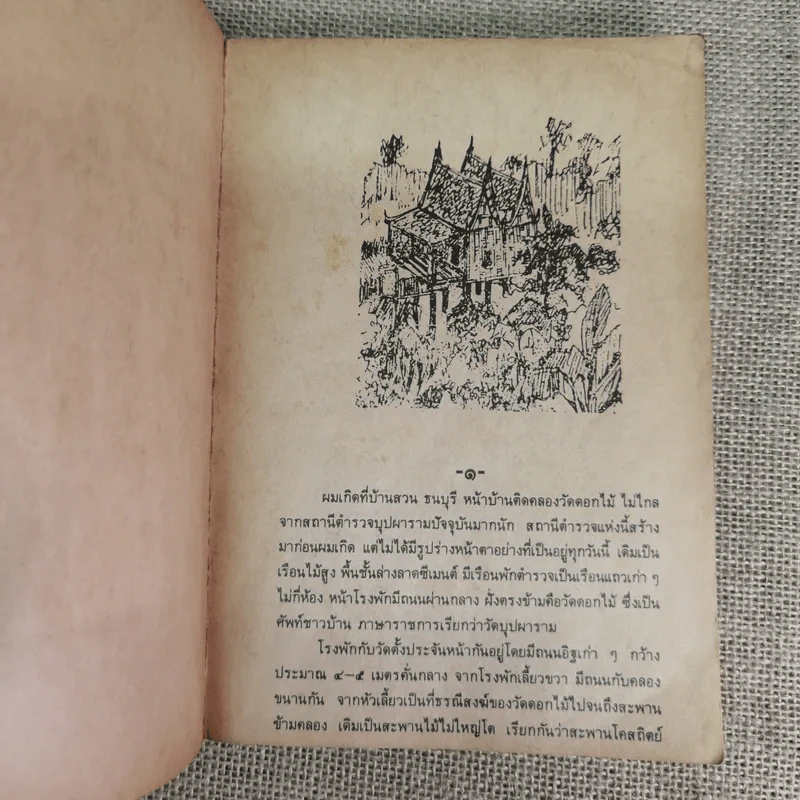 -๑-
ผมเกิดที่บ้านสวน ธนบุรี หน้าบ้านติดคลองวัดดอกไม้ ไม่ไกล
จากสถานีตำรวจบุปผารามปัจจุบันมากนัก สถานีตำรวจแห่งนี้สร้าง
มาก่อนผมเกิด แต่ไม่ได้มีรูปร่างหน้าตาอย่างที่เป็นอยู่ทุกวันนี้ เดิมเป็น
เรือนไม้สูง พื้นชั้นล่างลาดซีเมนต์ มีเรือนพักตำรวจเป็นเรือนแถวเก่า ๆ
ไม่กี่ห้อง หน้าโรงพักมีถนนผ่านกลาง ฝั่งตรงข้ามคือวัดดอกไม้ ซึ่งเป็น
ศัพท์ชาวบ้าน ภาษาราชการเรียกว่าวัดบุปผาราม
โรงพักกับวัดตั้งประจันหน้ากันอยู่โดยมีถนนอิฐเก่า ๆ กว้าง
ประมาณ ๔–๕ เมตรคั่นกลาง จากโรงพักเลี้ยวขวา มีถนนกับคลอง
ขนานกัน จากหัวเลี้ยวเป็นที่ธรณีสงฆ์ของวัดดอกไม้ไปจนถึงสะพาน
ข้ามคลอง เดิมเป็นสะพานไม้ไม่ใหญ่โต เรียกกันว่าสะพานโคสถิตย์